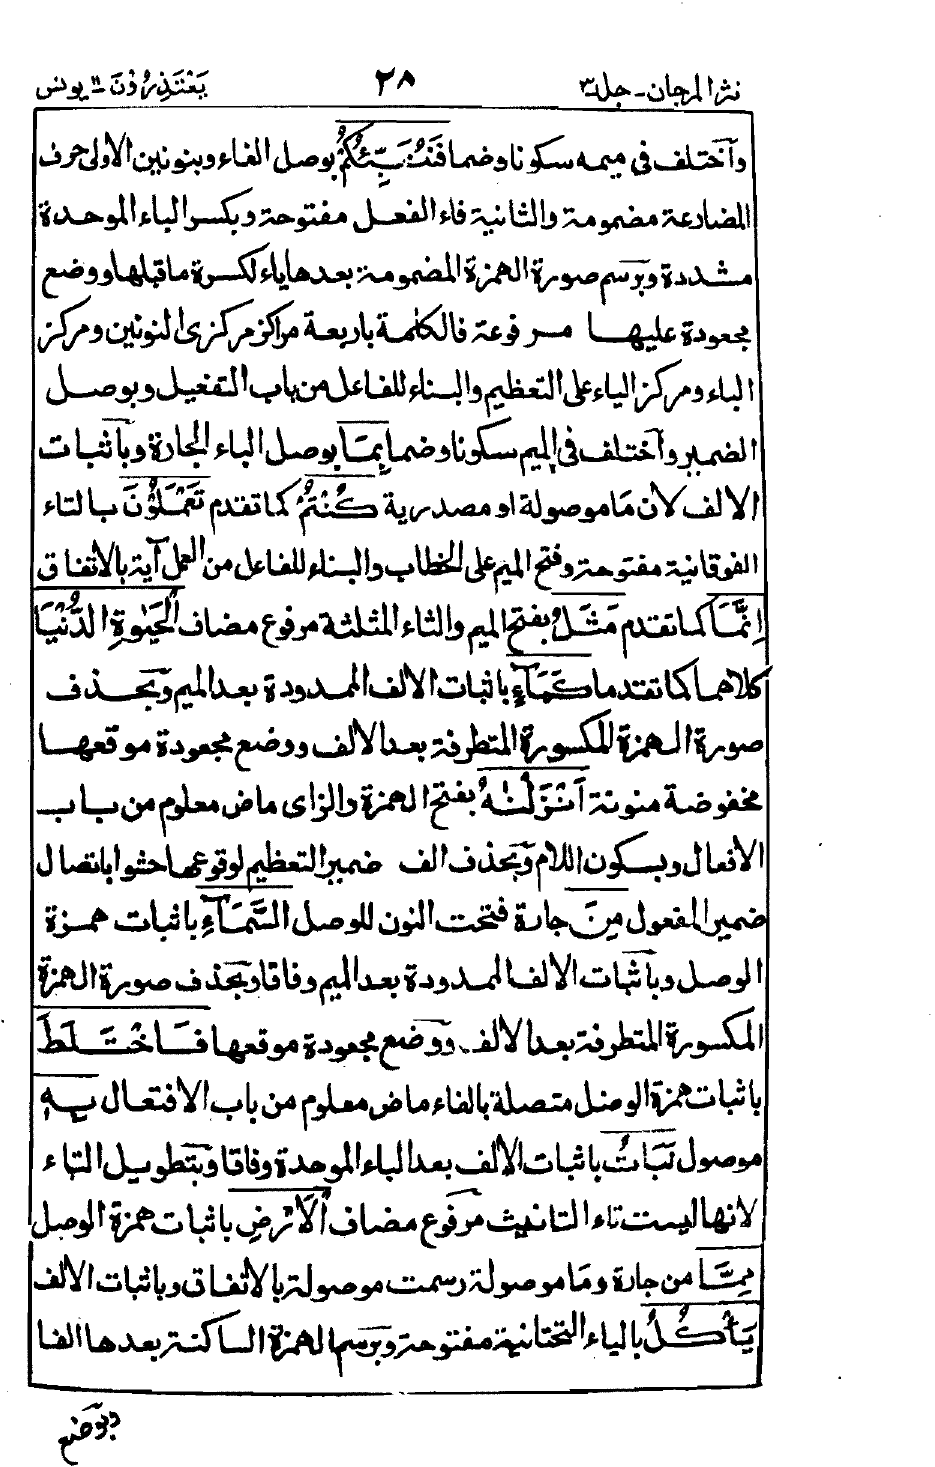 نثر المرجان - جلد ٣
٢٨
يعتذرون ١١ يونس
وآختلف فى ميمه سكونا وضما فَنُنَبِّئُكُمْ بوصل الفاء وبنونين الاولى حرف
المضارعة مضمومة والثانية فاء الفعل مفتوحة وبكسر الباء الموحدة
مشددة وبرسم صورة الهمزة المضمومة بعدها ياء لكسرة ما قبلها ووضع
مجعودة عليها مرفوعة فالكلمة باربعة مراكز مركزى النونين ومركز
الباء ومركز الياء على التعظيم والبناء للفاعل من باب التفعيل وبوصل
الضمير وآختلف فى الميم سكونا وضما بِمَا بوصل الباء الجارة وبآثبات
الالف لان ما موصولة او مصدرية كُنْتُمْ كما تقدم تَعْمَلُوْنَ بالتاء
الفوقانية مفتوحة وفتح الميم على الخطاب والبناء للفاعل من العمل آية بالاتفاق
اِنَّمَا كما تقدم مَثَلُ بفتح الميم والثاء المثلثة مرفوع مضاف الْحَيٰوةِ الدُّنْيَا
كلاهما كما تقتدما كَمَآءٍ باثبات الالف الممدودة بعد الميم وبحذف
صورة الهمزة المكسورة المتطرفة بعد الالف ووضع مجعودة موقعها
مخفوضة منونة اَنْزَلْنٰهُ بفتح الهمزة والزاى ماض معلوم من باب
الافعال وبسكون اللام وبحذف الف ضمير التعظيم لوقوعها حشوا باتصال
ضمير المفعول مِنَ جارة فتحت النون للوصل السَّمَآءِ باثبات همزة
الوصل وبآثبات الالف الممدودة بعد الميم وفاقا وبحذف صورة الهمزة
المكسورة المتطرفة بعد الالف ووضع مجعودة موقعها فَاخْتَلَطَ
باثبات همزة الوصل متصلة بالفاء ماض معلوم من باب الافتعال بِهٖ
موصول نَبَاتُ باثبات الالف بعد الباء الموحدة وفاقا وبتطويل التاء
لانها ليست تاء التانيث مرفوع مضاف الْاَرْضِ باثبات همزة الوصل
مِمَّا من جارة وما موصولة رسمت موصولة بالاتفاق وباثبات الالف
يَاْكُلُ بالياء التحتانية مفتوحة وبرسم الهمزة الساكنة بعدها الفا
وبوضع